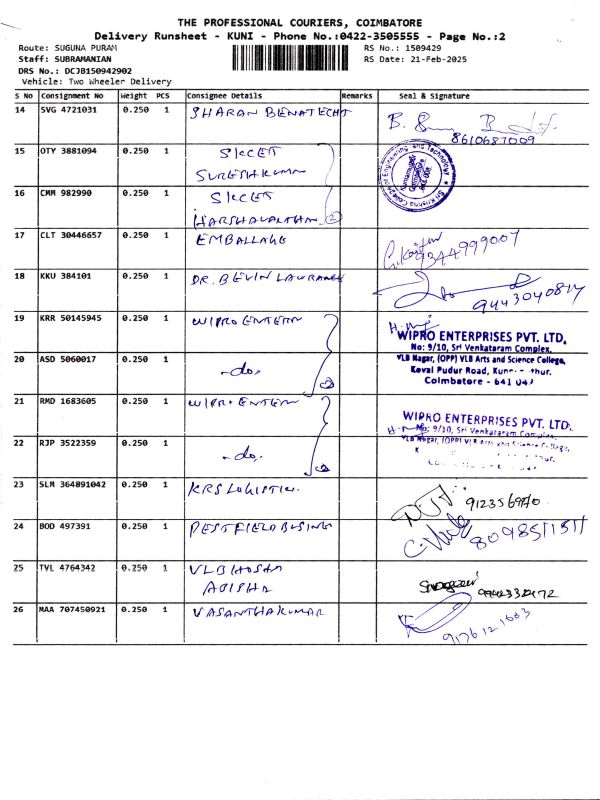 THE PROFESSIONAL COURIERS, COIMBATORE
Delivery Runsheet - KUNI - Phone No.:0422-3505555 - Page No.:2
Route: SUGUNA PURAM RS No.: 1509429
Staff: SUBRAMANIAN RS Date: 21-Feb-2025
DRS No.: DCJB150942902
Vehicle: Two Wheeler Delivery
S No Consignment No Weight PCS Consignee Details Remarks Seal & Signature
14 SVG 4721031 0.250 1 SHARAN BENATECHT
8610687009
15 OTY 3881094 0.250 1 SKCET
SURESHKUMAR
Sri Krishna College of Engineering and Technology
Kuniamuthur
Coimbatore
641 008
16 CMM 982990 0.250 1 SKCET
HARSHAVANTHAN (2)
17 CLT 30446657 0.250 1 EMBALLAGE
9344999007
18 KKU 384101 0.250 1 DR. BEVIN LAWRANCE
9443040817
19 KRR 50145945 0.250 1 WIPRO ENTERN
WIPRO ENTERPRISES PVT. LTD.
No: 9/10, Sri Venkataram Complex,
VLB Nagar, (OPP) VLB Arts and Science College,
Kovai Pudur Road,
Coimbatore - 641 042
20 ASD 5060017 0.250 1 -do. (2)
21 RMD 1683605 0.250 1 WIPRO ENTERN
WIPRO ENTERPRISES PVT. LTD.
No: 9/10, Sri Venkataram Complex,
VLB Nagar, (OPP) VLB Arts and Science College,
22 RJP 3522359 0.250 1 -do. (2)
23 SLM 364891042 0.250 1 KRS LOGISTIC
24 BOD 497391 0.250 1 PESTFIELD BUSING
8098511511
25 TVL 4764342 0.250 1 VLB HOSTA
ABISHA
26 MAA 707450921 0.250 1 VASANTHAKUMAR
9176121603